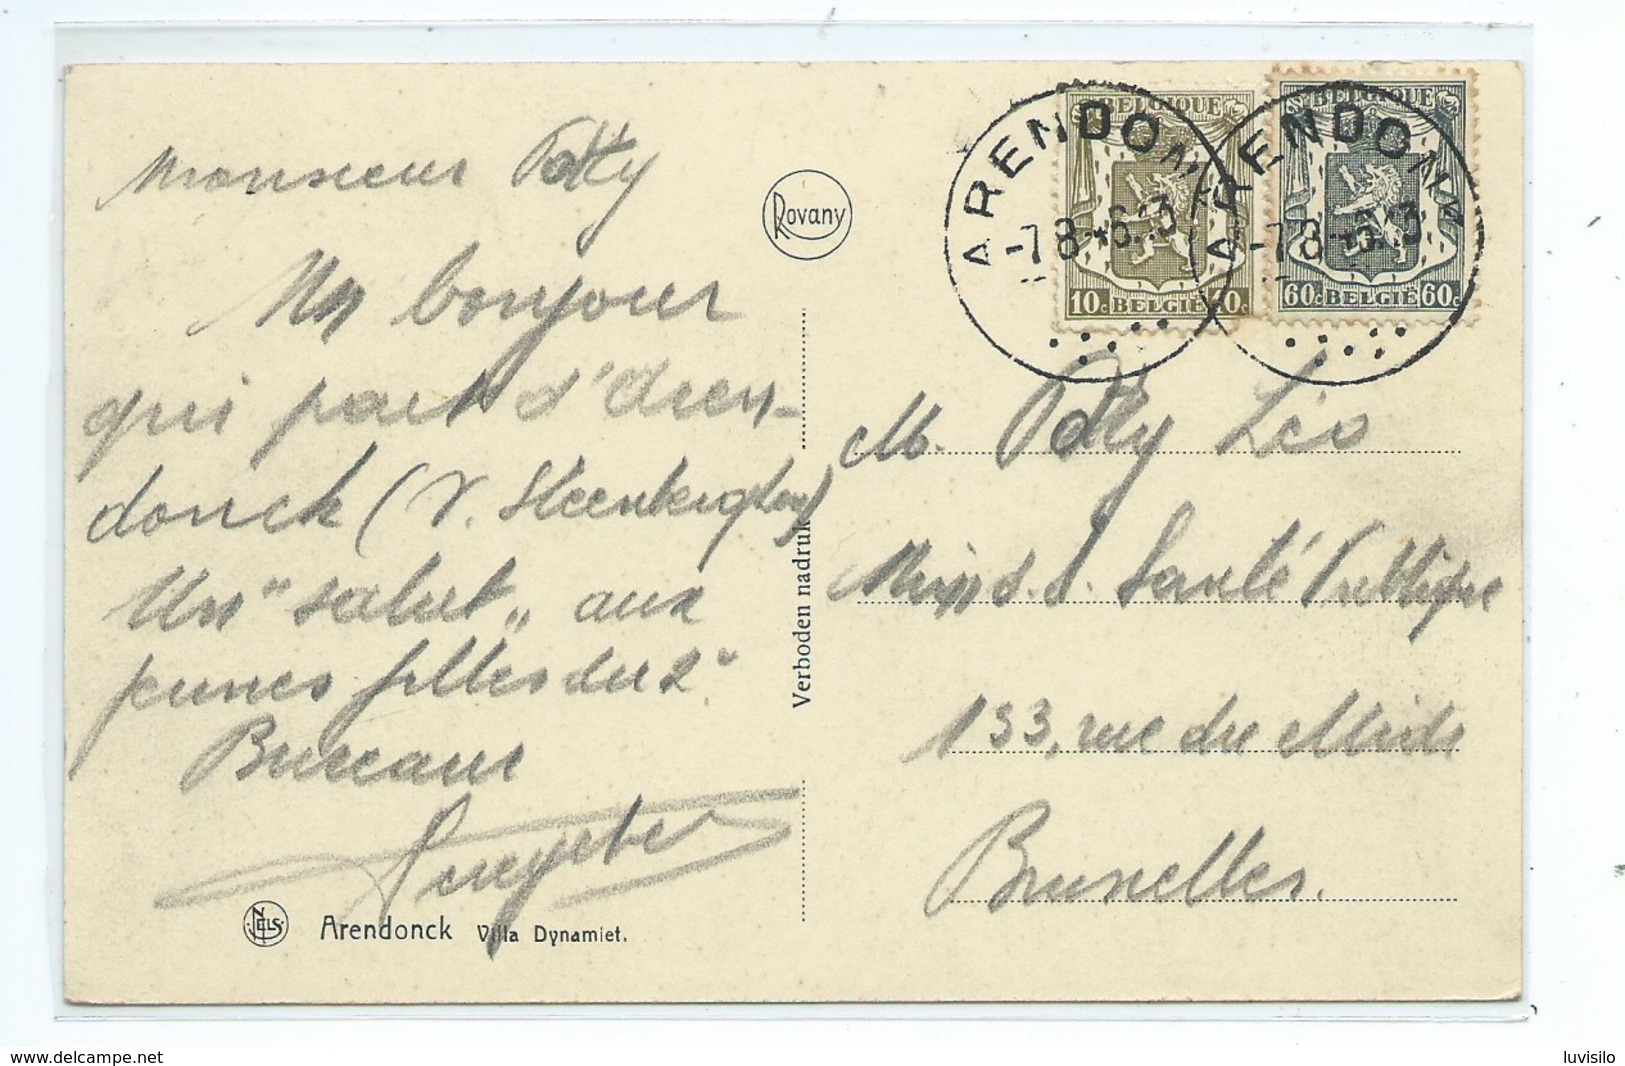 Monsieur Potty
Un bonjour
qui part d'Aren-
donck (V. Steenberghen)
Un "salut" aux
jeunes filles du 2e
Bureau
NELS
Arendonck Villa Dynamiet.
Rovany
Verboden nadruk
BELGIQUE
10c BELGIË 10c
BELGIQUE
60c BELGIË 60c
ARENDONK
-7 8-46.13
ARENDONK
-7 8-46.13
M. Potty Léo
Min d. l. Santé Publique
133, rue du Midi
Bruxelles.
www.delcampe.net
luvisilo